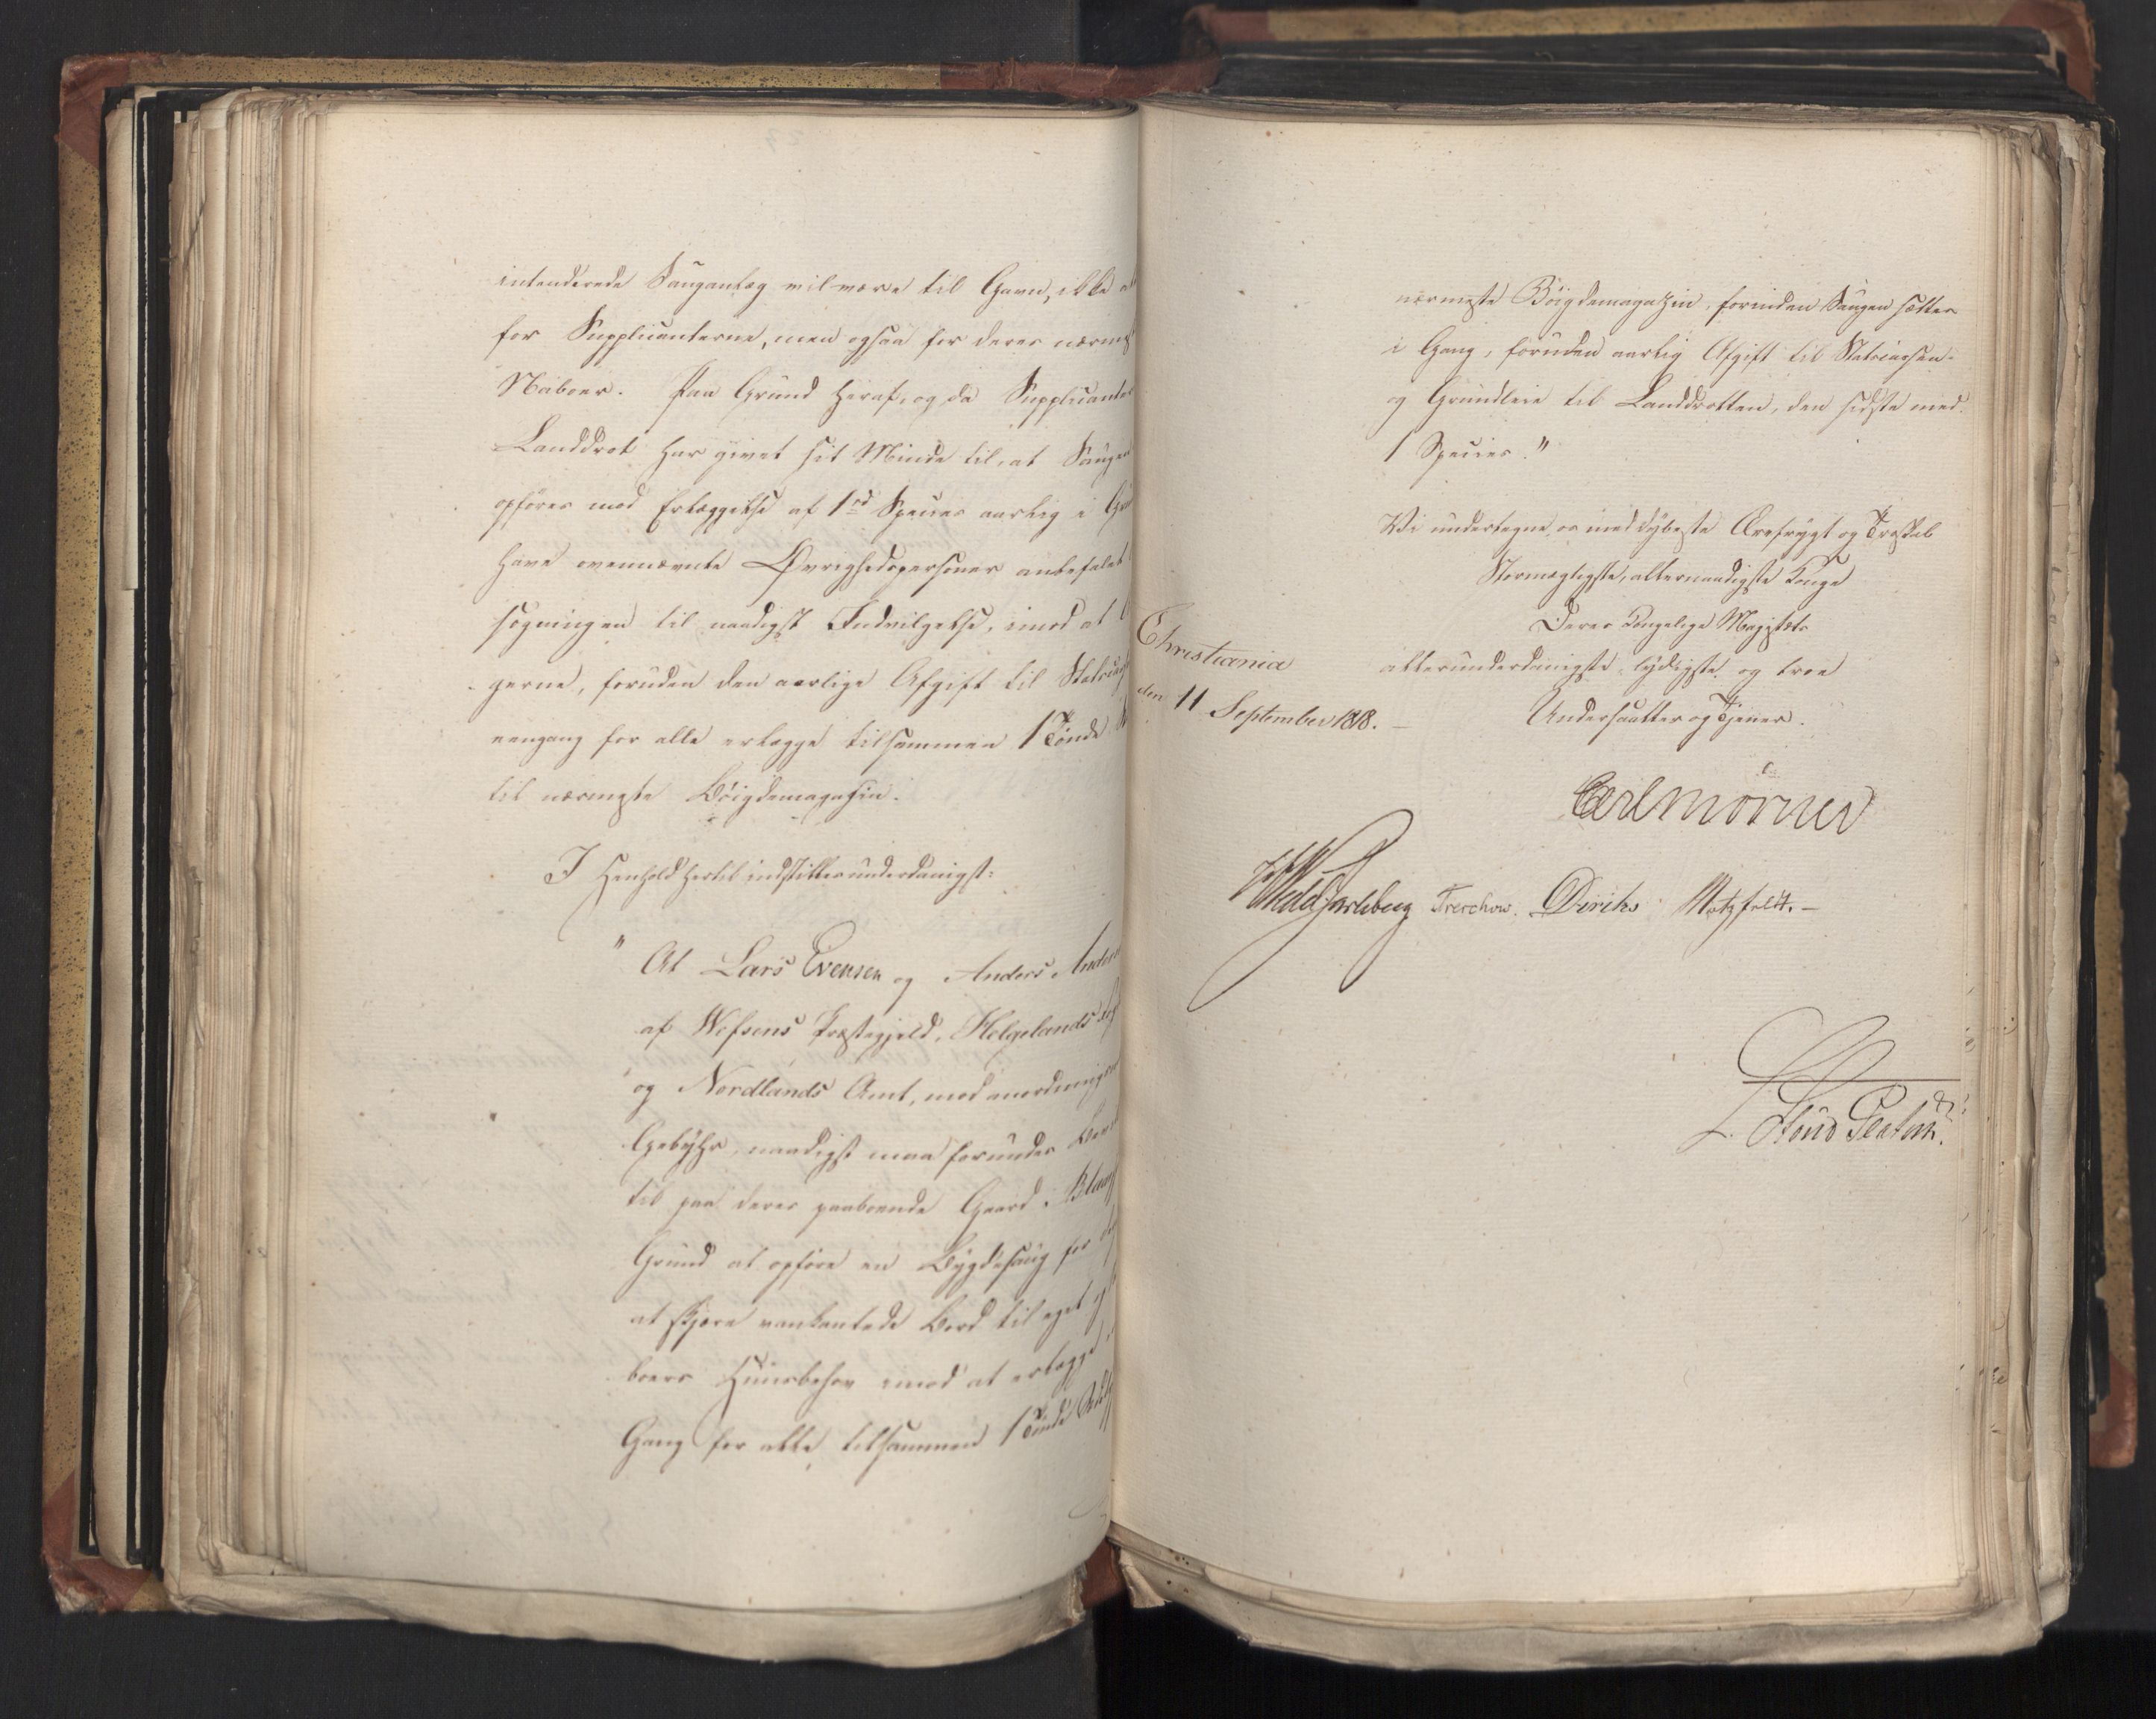 intenderede Sauganlæg vil være til Gavn, ikke
for Supplicanterne, men ogsaa for deres nærmes
Naboer. Paa Grund heraf, og da Supplicanter
Landdrot har givet sit Minde til, at Saugen
opføres mod Erlæggelse af 1 rd Species aarlig i
have ovennævnte Øvrighedspersoner anbefalet
søgningen til naadigst Indvilgelse, imod at
gerne, foruden den aarlige Afgift til
eengang for alle erlægge tilsammen 1 Tønde
til nærmeste Bøigdemagasin.
I Henhold hertil indstilles underdanigst:
" At Lars Evensen og Anders Anders
af Wefsens Præstegjeld, Helgelands
og Nordlands Amt, mod anordningsm
Gebyhr, naadigst maa forundes
til paa deres paaboende Gaard
Grund at opføre en Bygdesaug for
at skjære vankantede Bord til eget og
boers Huusbehov imod at erlægge
Gang for alle, tilsammen 1 Tønde
nærmeste Bøigdemagazin, forinden Saugen sættes
i Gang, foruden aarlig Afgift til Statscassen
og Grundleie til Landdrotten, den sidste med
1 Species."
Vi undertegne os med dybeste Ærefrygt og Troskab
Stormægtigste, allernaadigste Konge
Deres Kongelige Majestæts
allerunderdanigste lydigste og troe
Undersaatter og Tjener.
Christiania
den 11 September 1818. –
Carl Mörner
Wedel Jarlsberg Treschow. Diriks Motzfeldt. –
L. Stoud Platou.